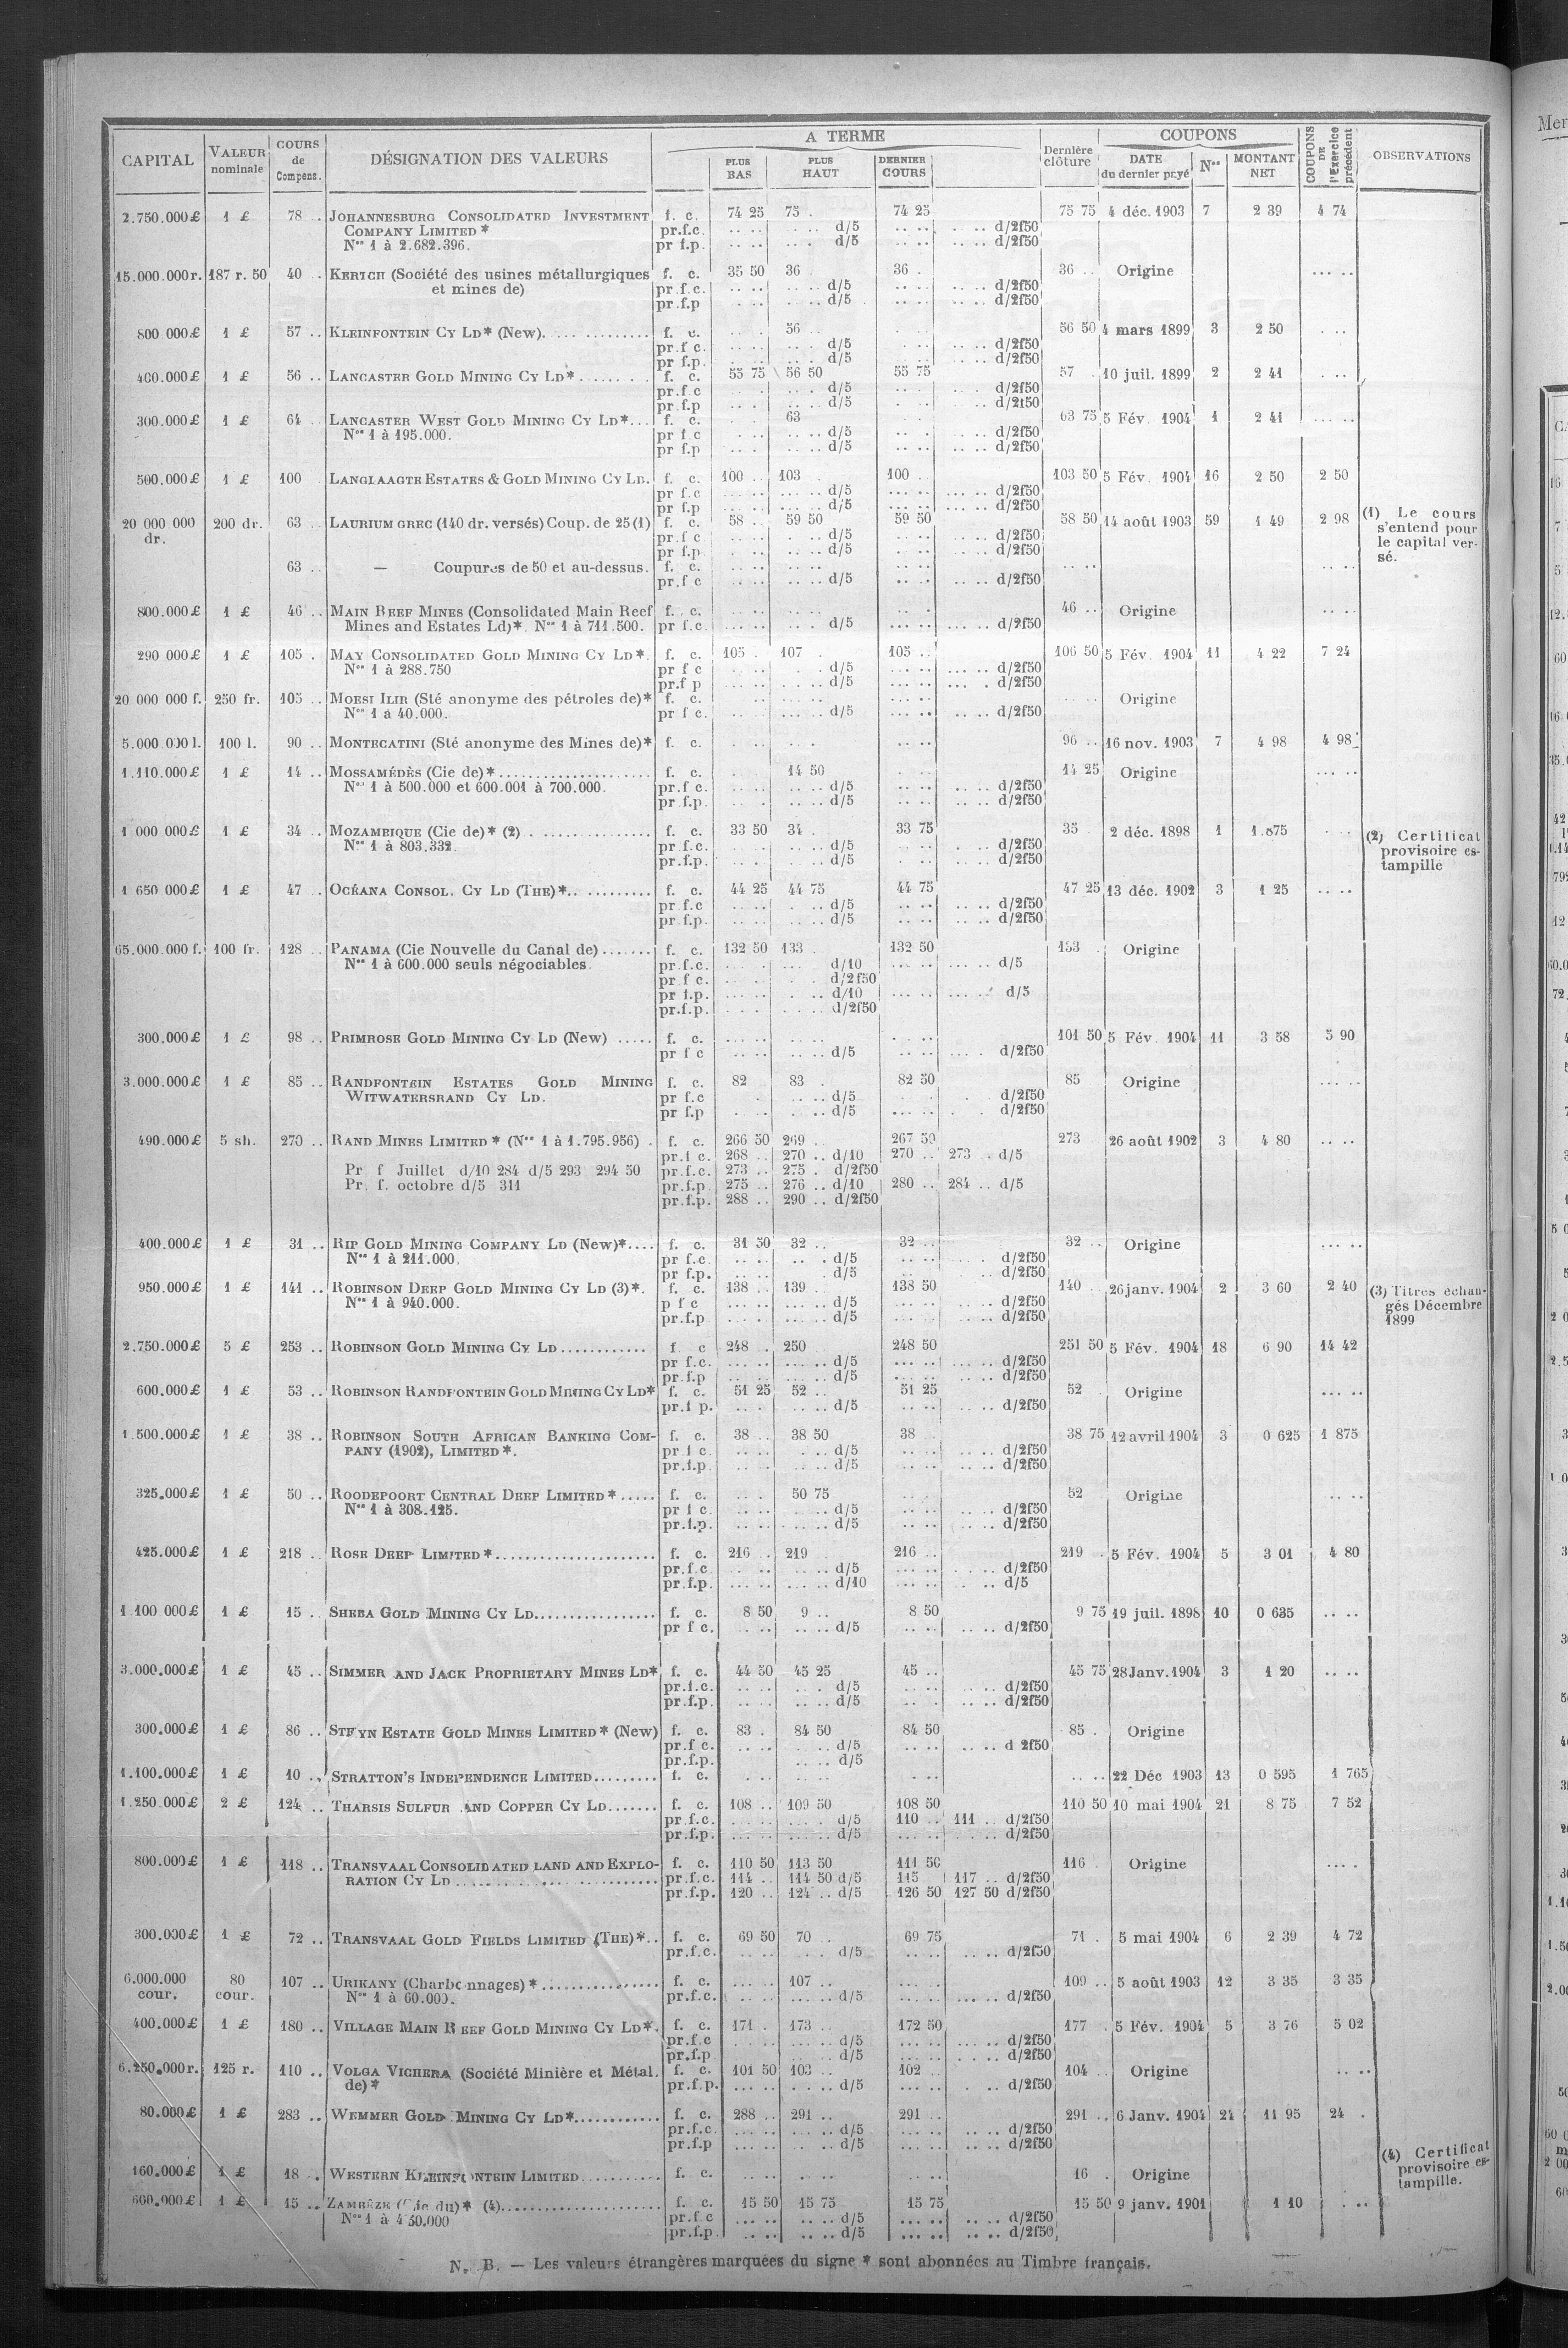 CAPITAL | VALEUR nominale | COURS de Compens. | DÉSIGNATION DES VALEURS | A TERME | PLUS BAS | PLUS HAUT | DERNIER COURS | Dernière clôture | COUPONS | DATE du dernier payé | Nos | MONTANT NET | COUPONS DE l'Exercice précédent | OBSERVATIONS
2.750.000 £ 1 £ 78 . JOHANNESBURG CONSOLIDATED INVESTMENT f. c. 74 25 75 . 74 25 75 75 4 déc. 1903 7 2 39 4 74
COMPANY LIMITED * pr.f.c. d/5 d/2f50
Nos 1 à 2.682.396. pr f.p. d/5 d/2f50
15.000.000 r. 187 r. 50 40 . KERTCH (Société des usines métallurgiques f. c. 35 50 36 36 . 36 .. Origine
et mines de) pr.f.c. d/5 d/2f50
pr.f.p d/5 d/2f50
800 000 £ 1 £ 57 .. KLEINFONTEIN CY LD* (New). f. c. 56 .. 56 50 4 mars 1899 3 2 50
pr.f c. d/5 d/2f50
pr f.p. d/5 d/2f50
400.000 £ 1 £ 56 .. LANCASTER GOLD MINING CY LD* f. c. 55 75 56 50 55 75 57 . 10 juil. 1899 2 2 41
pr.f.c d/5 d/2f50
pr.f.p d/5 d/2f50
300.000 £ 1 £ 64 . LANCASTER WEST GOLD MINING CY LD* f. c. 63 63 75 5 Fév. 1904 1 2 41
Nos 1 à 195.000. pr f c d/5 d/2f50
pr f.p d/5 d/2f50
500.000 £ 1 £ 100 . LANGLAAGTE ESTATES & GOLD MINING CY LD. f. c. 100 .. 103 . 100 . 103 50 5 Fév. 1904 16 2 50 2 50
pr f.c d/5 d/2f50
pr f.p d/5 d/2f50
20 000 000 dr. 200 dr. 63 .. LAURIUM GREC (140 dr. versés) Coup. de 25 (1) f. c. 58 .. 59 50 59 50 58 50 14 août 1903 59 1 49 2 98 (1) Le cours s'entend pour le capital versé.
pr.f c d/5 d/2f50
pr f.p. d/5 d/2f50
63 .. — Coupures de 50 et au-dessus. f. c.
pr.f c d/5 d/2f50
800.000 £ 1 £ 46 .. MAIN REEF MINES (Consolidated Main Reef f. c. 46 .. Origine
Mines and Estates Ld)*. Nos 1 à 711.500. pr f.c. d/5 d/2f50
290 000 £ 1 £ 105 . MAY CONSOLIDATED GOLD MINING CY LD*. f. c. 105 . 107 . 105 .. 106 50 5 Fév. 1904 11 4 22 7 24
Nos 1 à 288.750 pr f c d/5 d/2f50
pr.f p d/5 d/2f50
20 000 000 f. 250 fr. 105 .. MOESI ILIR (Sté anonyme des pétroles de)* f. c. Origine
Nos 1 à 40.000. pr f c. d/5 d/2f50
5.000 000 l. 100 l. 90 .. MONTECATINI (Sté anonyme des Mines de)* f. c. 96 .. 16 nov. 1903 7 4 98 4 98
1.110.000 £ 1 £ 14 .. MOSSAMÉDÈS (Cie de)* f. c. 14 50 14 25 Origine
Nos 1 à 500.000 et 600.001 à 700.000. pr.f c. d/5 d/2f50
pr.f.p. d/5 d/2f50
1 000 000 £ 1 £ 34 .. MOZAMBIQUE (Cie de)* (2) f. c. 33 50 34 . 33 75 35 . 2 déc. 1898 1 1.875 (2) Certificat provisoire estampille
Nos 1 à 803.332. pr f.c. d/5 d/2f50
pr.f.p. d/5 d/2f50
1 650 000 £ 1 £ 47 . OCÉANA CONSOL. CY LD (THE)* f. c. 44 25 44 75 44 75 47 25 13 déc. 1902 3 1 25
pr f.c d/5 d/2f50
pr.f.p. d/5 d/2f50
65.000.000 f. 100 fr. 128 .. PANAMA (Cie Nouvelle du Canal de) f. c. 132 50 133 . 132 50 133 . Origine
Nos 1 à 600.000 seuls négociables. pr f.c. d/10 d/5
pr f c. d/2f50
pr f.p. d/10 d/5
pr.f.p. d/2f50
300.000 £ 1 £ 98 .. PRIMROSE GOLD MINING CY LD (New) f. c. 101 50 5 Fév. 1904 11 3 58 5 90
pr f c d/5 d/2f50
3.000.000 £ 1 £ 85 .. RANDFONTEIN ESTATES GOLD MINING f. c. 82 83 . 82 50 85 Origine
WITWATERSRAND CY LD. pr f.c d/5 d/2f50
pr f.p d/5 d/2f50
490.000 £ 5 sh. 270 .. RAND MINES LIMITED * (Nos 1 à 1.795.956) . f. c. 266 50 269 .. 267 50 273 26 août 1902 3 4 80
pr.f c. 268 .. 270 .. d/10 270 .. 273 . d/5
Pr f Juillet d/10 284 d/5 293 294 50 pr.f.c. 273 .. 275 . d/2f50
Pr. f. octobre d/5 311 pr.f.p. 275 .. 276 .. d/10 280 .. 284 .. d/5
pr.f.p. 288 .. 290 .. d/2f50
400.000 £ 1 £ 31 .. RIP GOLD MINING COMPANY LD (New)* f. c. 31 50 32 .. 32 .. 32 .. Origine
Nos 1 à 211.000. pr f.c. d/5 d/2f50
pr f.p. d/5 d/2f50
950.000 £ 1 £ 141 .. ROBINSON DEEP GOLD MINING CY LD (3)*. f. c. 138 .. 139 .. 138 50 140 . 26 janv. 1904 2 3 60 2 40 (3) Titres échangés Décembre 1899
Nos 1 à 940.000. p f c d/5 d/2f50
pr.f.p d/5 d/2f50
2.750.000 £ 5 £ 253 .. ROBINSON GOLD MINING CY LD f c 248 .. 250 248 50 251 50 5 Fév. 1904 18 6 90 14 42
pr f.c. d/5 d/2f50
pr.f.p d/5 d/2f50
600.000 £ 1 £ 53 .. ROBINSON RANDFONTEIN GOLD MINING CY LD* f. c. 51 25 52 .. 51 25 52 . Origine
pr.f p. d/5 d/2f50
1.500.000 £ 1 £ 38 .. ROBINSON SOUTH AFRICAN BANKING COM- f. c. 38 .. 38 50 38 38 75 12 avril 1904 3 0 625 1 875
PANY (1902), LIMITED *. pr f c. d/5 d/2f50
pr.f.p. d/5 d/2f50
325.000 £ 1 £ 50 .. ROODEPOORT CENTRAL DEEP LIMITED * f. c. 50 75 52 Origine
Nos 1 à 308.125. pr f c. d/5 d/2f50
pr.f.p. d/5 d/2f50
425.000 £ 1 £ 218 . ROSE DEEP LIMITED * f. c. 216 .. 219 216 .. 219 . 5 Fév. 1904 5 3 01 4 80
pr.f.c d/5 d/2f50
pr.f.p. d/10 d/5
1 100 000 £ 1 £ 15 .. SHEBA GOLD MINING CY LD. f. c. 8 50 9 .. 8 50 9 75 19 juil. 1898 10 0 635
pr f c. d/5 d/2f50
3.000.000 £ 1 £ 45 .. SIMMER AND JACK PROPRIETARY MINES LD* f. c. 44 50 45 25 45 .. 45 75 28 Janv. 1904 3 1 20
pr.f.c. d/5 d/2f50
pr.f.p. d/5 d/2f50
300.000 £ 1 £ 86 .. STEYN ESTATE GOLD MINES LIMITED * (New) f. c. 83 . 84 50 84 50 85 . Origine
pr.f c. d/5 d 2f50
pr.f.p. d/5
1.100.000 £ 1 £ 10 .. STRATTON'S INDEPENDENCE LIMITED f. c. 22 Déc 1903 13 0 595 1 765
1.250 000 £ 2 £ 124 .. THARSIS SULFUR AND COPPER CY LD f. c. 108 .. 109 50 108 50 110 50 10 mai 1904 21 8 75 7 52
pr f.c. d/5 110 .. 111 .. d/2f50
pr.f.p. d/5 d/2f50
800.000 £ 1 £ 118 .. TRANSVAAL CONSOLIDATED LAND AND EXPLO- f. c. 110 50 113 50 111 50 116 . Origine
RATION CY LD pr.f.c. 114 .. 114 50 d/5 115 117 .. d/2f50
pr.f.p. 120 .. 124 .. d/5 126 50 127 50 d/2f50
300.000 £ 1 £ 72 .. TRANSVAAL GOLD FIELDS LIMITED (THE)* f. c. 69 50 70 .. 69 75 71 . 5 mai 1904 6 2 39 4 72
pr.f.c. d/5 d/2f50
6.000.000 cour. 80 cour. 107 .. URIKANY (Charbonnages) * f. c. 107 .. 109 .. 5 août 1903 12 3 35 3 35
Nos 1 à 60.000. pr.f.c. d/5 d/2f50
400.000 £ 1 £ 180 .. VILLAGE MAIN REEF GOLD MINING CY LD*. f. c. 171 . 173 .. 172 50 177 . 5 Fév. 1904 5 3 76 5 02
pr.f.c d/5 d/2f50
pr.f.p d/5 d/2f50
6.250.000 r. 125 r. 110 .. VOLGA VICHERA (Société Minière et Métal. f. c. 101 50 103 .. 102 .. 104 .. Origine
de)* pr.f.p. d/5 d/2f50
80.000 £ 1 £ 283 .. WEMMER GOLD MINING CY LD* f. c. 288 .. 291 .. 291 .. 291 .. 6 Janv. 1904 24 11 95 24 .
pr.f.c. d/5 d/2f50
pr.f.p d/5 d/2f50
160.000 £ 1 £ 18 . WESTERN KLEINFONTEIN LIMITED f. c. 16 . Origine (4) Certificat provisoire estampille.
600.000 £ 1 £ 15 .. ZAMBÈZE (Cie du)* (4) f. c. 15 50 15 75 15 75 15 50 9 janv. 1901 1 10
Nos 1 à 450.000 pr.f.c d/5 d/2f50
pr.f.p. d/5 d/2f50
N. B. — Les valeurs étrangères marquées du signe * sont abonnées au Timbre français.